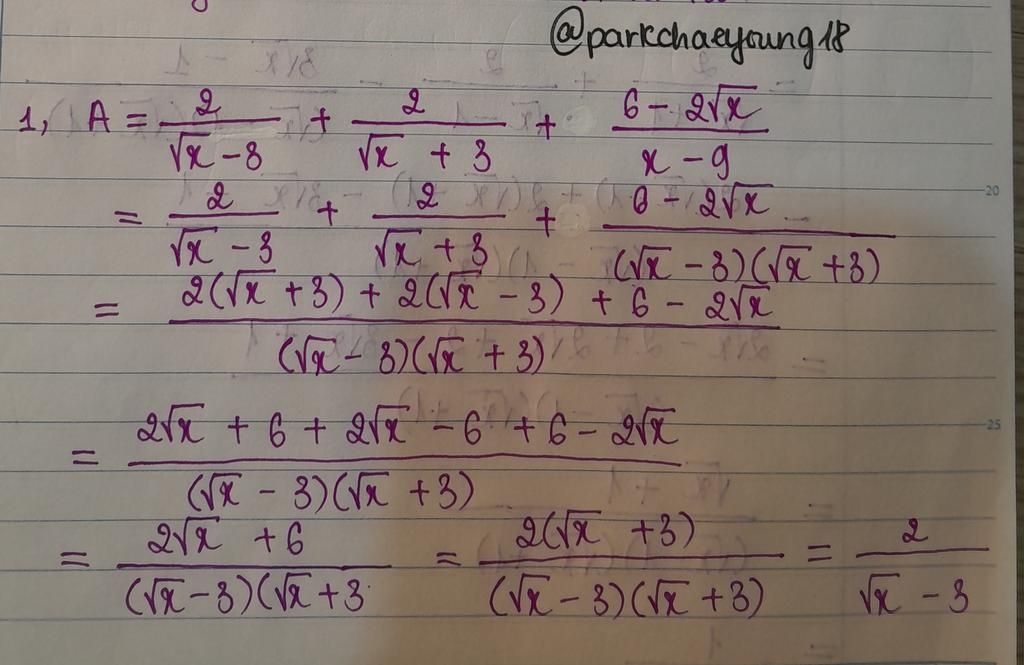 @parkchaeyoung18
1, A = 2/(√x - 3) + 2/(√x + 3) + (6 - 2√x)/(x - 9)
= 2/(√x - 3) + 2/(√x + 3) + (6 - 2√x)/((√x - 3)(√x + 3))
= (2(√x + 3) + 2(√x - 3) + 6 - 2√x)/((√x - 3)(√x + 3))
20
= (2√x + 6 + 2√x - 6 + 6 - 2√x)/((√x - 3)(√x + 3))
25
= (2√x + 6)/((√x - 3)(√x + 3) = (2(√x + 3))/((√x - 3)(√x + 3)) = 2/(√x - 3)